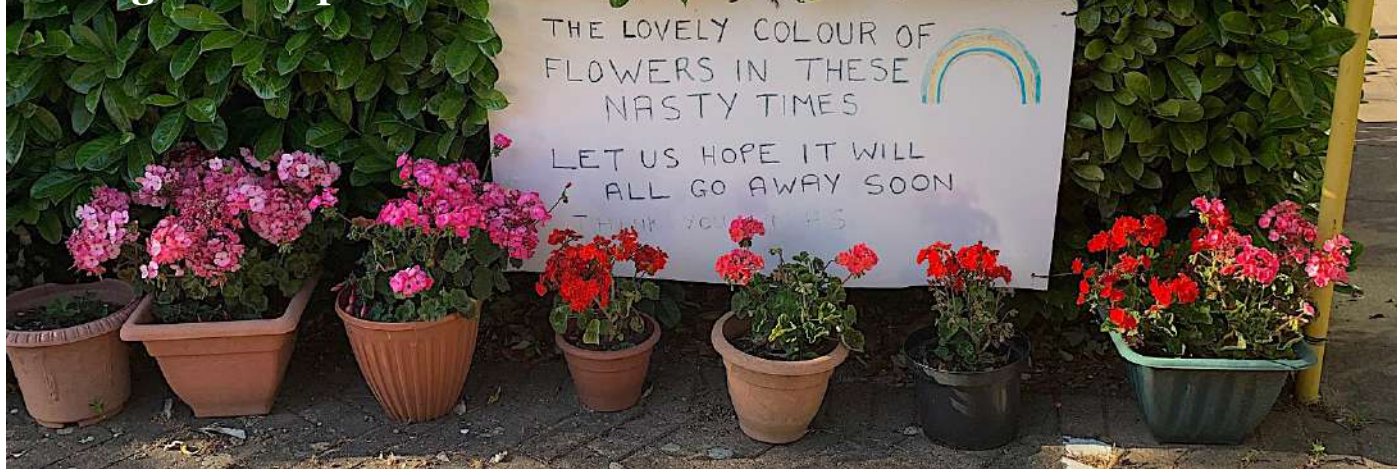 THE LOVELY COLOUR OF
FLOWERS IN THESE
NASTY TIMES
LET US HOPE IT WILL
ALL GO AWAY SOON
THANK YOU